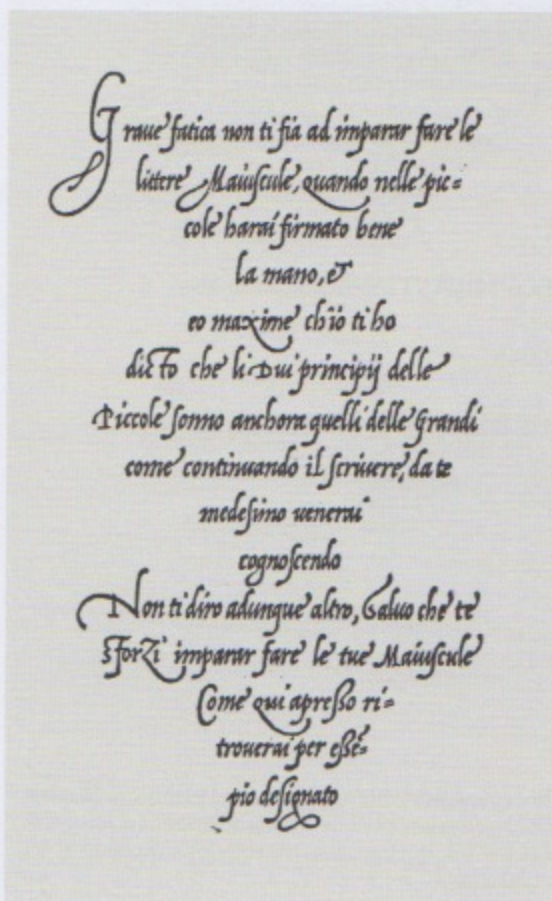 Graue fatica non ti fia ad imparar fare le
littere Maiuscule, quando nelle pic=
cole harai firmato bene
la mano, et
eo maxime ch'io ti ho
dicto che li Dui principij delle
Piccole sonno anchora quelli delle Grandi
come continuando il scriuere, da te
medesimo uenerai
cognoscendo
Non ti diro adunque altro, Saluo che te
sforzi imparar fare le tue Maiuscule
Come qui apresso ri=
trouerai per essē=
pio designato